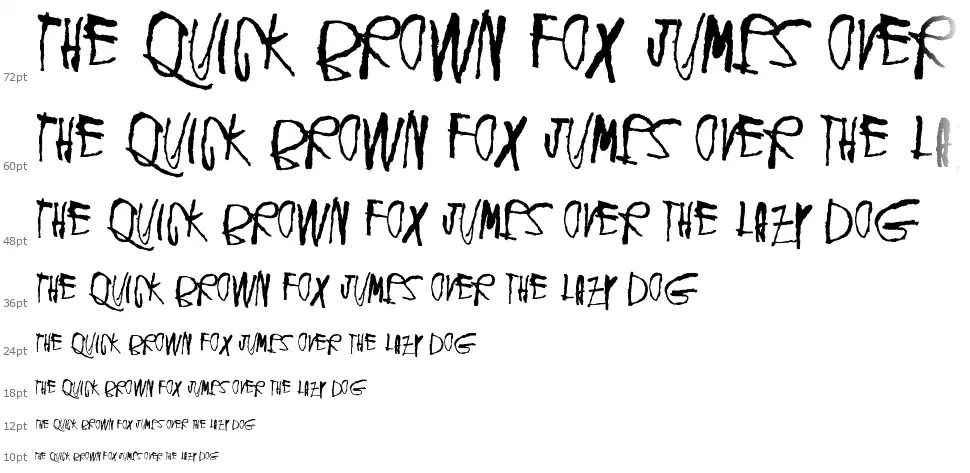 72pt THE QUICK BROWN FOX JUMPS OVER
60pt THE QUICK BROWN FOX JUMPS OVER THE LA
48pt THE QUICK BROWN FOX JUMPS OVER THE LAZY DOG
36pt THE QUICK BROWN FOX JUMPS OVER THE LAZY DOG
24pt THE QUICK BROWN FOX JUMPS OVER THE LAZY DOG
18pt THE QUICK BROWN FOX JUMPS OVER THE LAZY DOG
12pt THE QUICK BROWN FOX JUMPS OVER THE LAZY DOG
10pt THE QUICK BROWN FOX JUMPS OVER THE LAZY DOG